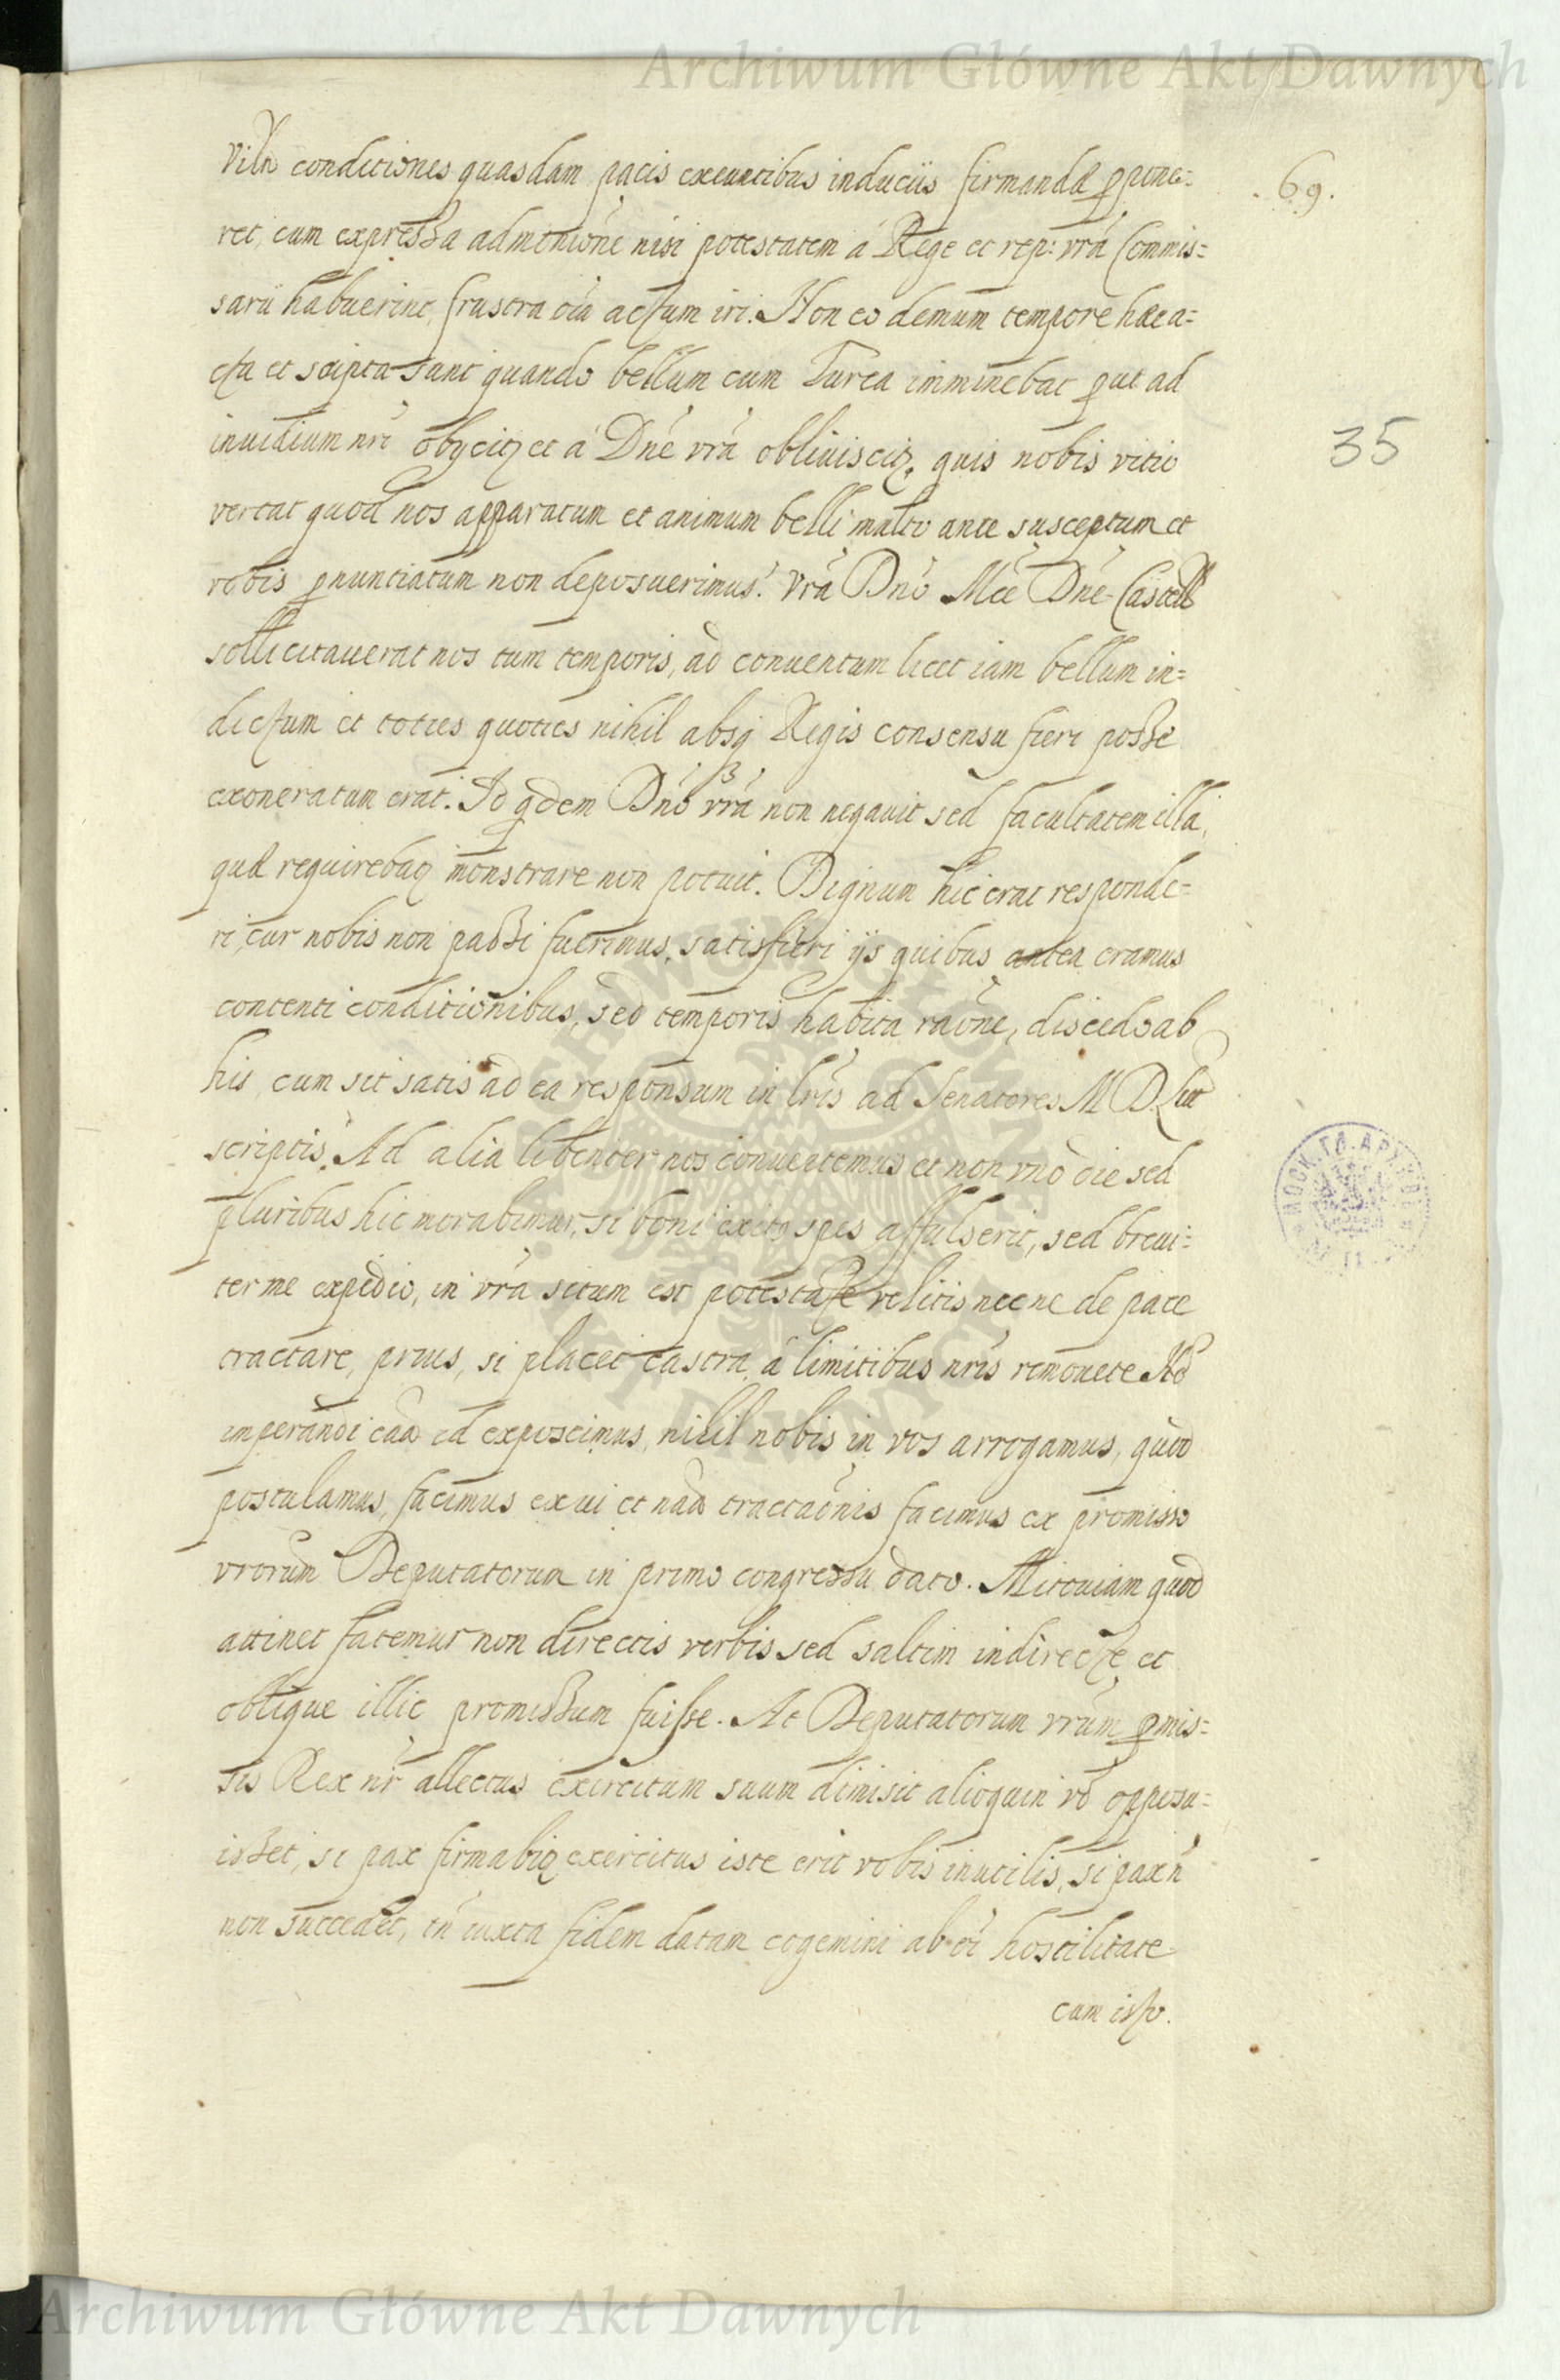 Archiwum Główne Akt Dawnych
Viln conditiones quasdam pacis exeuntibus induciis firmandæ ꝓpone=
. 69.
ret, cum expressa admonitione nisi potestatem á Rege et rep: vrã Commis=
sarii habuerint, frustra oĩa actum iri. Non eo demum tempore hæc a=
cta et scripta sunt quando bellum cum Turca imminebat ꝓut ad
inuidium nri obycitʒ et á Dne vrã obliuiscitʒ, quis nobis vitio
35
vertat quod nos apparatum et animum belli multo ante susceptum et
vobis ꝓnuntiatum non deposuerimus. Vrã Dnõ Mcẽ Dne Castell
sollicitauerat nos tum temporis, ad conuentum licet iam bellum in=
dictum et toties quoties nihil absq Regis consensu fieri posse
exoneratum erat. Id qdem Dnõ vrã non negauit sed facultatem illã,
quæ requirebaʒ monstrare non potuit. Dignum hic erat responde=
ri, cur nobis non passi fuerimus, satisfieri ijs quibus antea eramus
contenti conditionibus, sed temporis habita raõne, discedo ab
his, cum sit satis ad ea responsum in lris ad Senatores M D Lit
scriptis. Ad alia libenter nos conuertemus et non vno die sed
pluribus hic morabimur, si boni exitʒ spes affulserit, sed breui=
ter me expedio, in vrã situm est potestate velitis necne de pace
tractare, prius, si placet castra á limitibus nris remouete Nõ
imperandi caã id exposcimus, nihil nobis in vos arrogamus, quod
postulamus, facimus ex ui et naã tractaõnis facimus ex promisso
vrorum Deputatorum in primo congressu dato. Mitouiam quod
attinet fatemur non directis verbis sed saltim indirecte et
oblique illic promissum fuisse. At Deputatorum vrũm ꝓmis=
sis Rex nr allectus exercitum suum dimisit alioquin võ opposu=
isset, si pax firmabiʒ exercitus iste erit vobis inutilis, si pax ñ
non succedet, tñ iuxta fidem datam cogemini ab oĩ hostilitate
cum isto.
Archiwum Główne Akt Dawnych